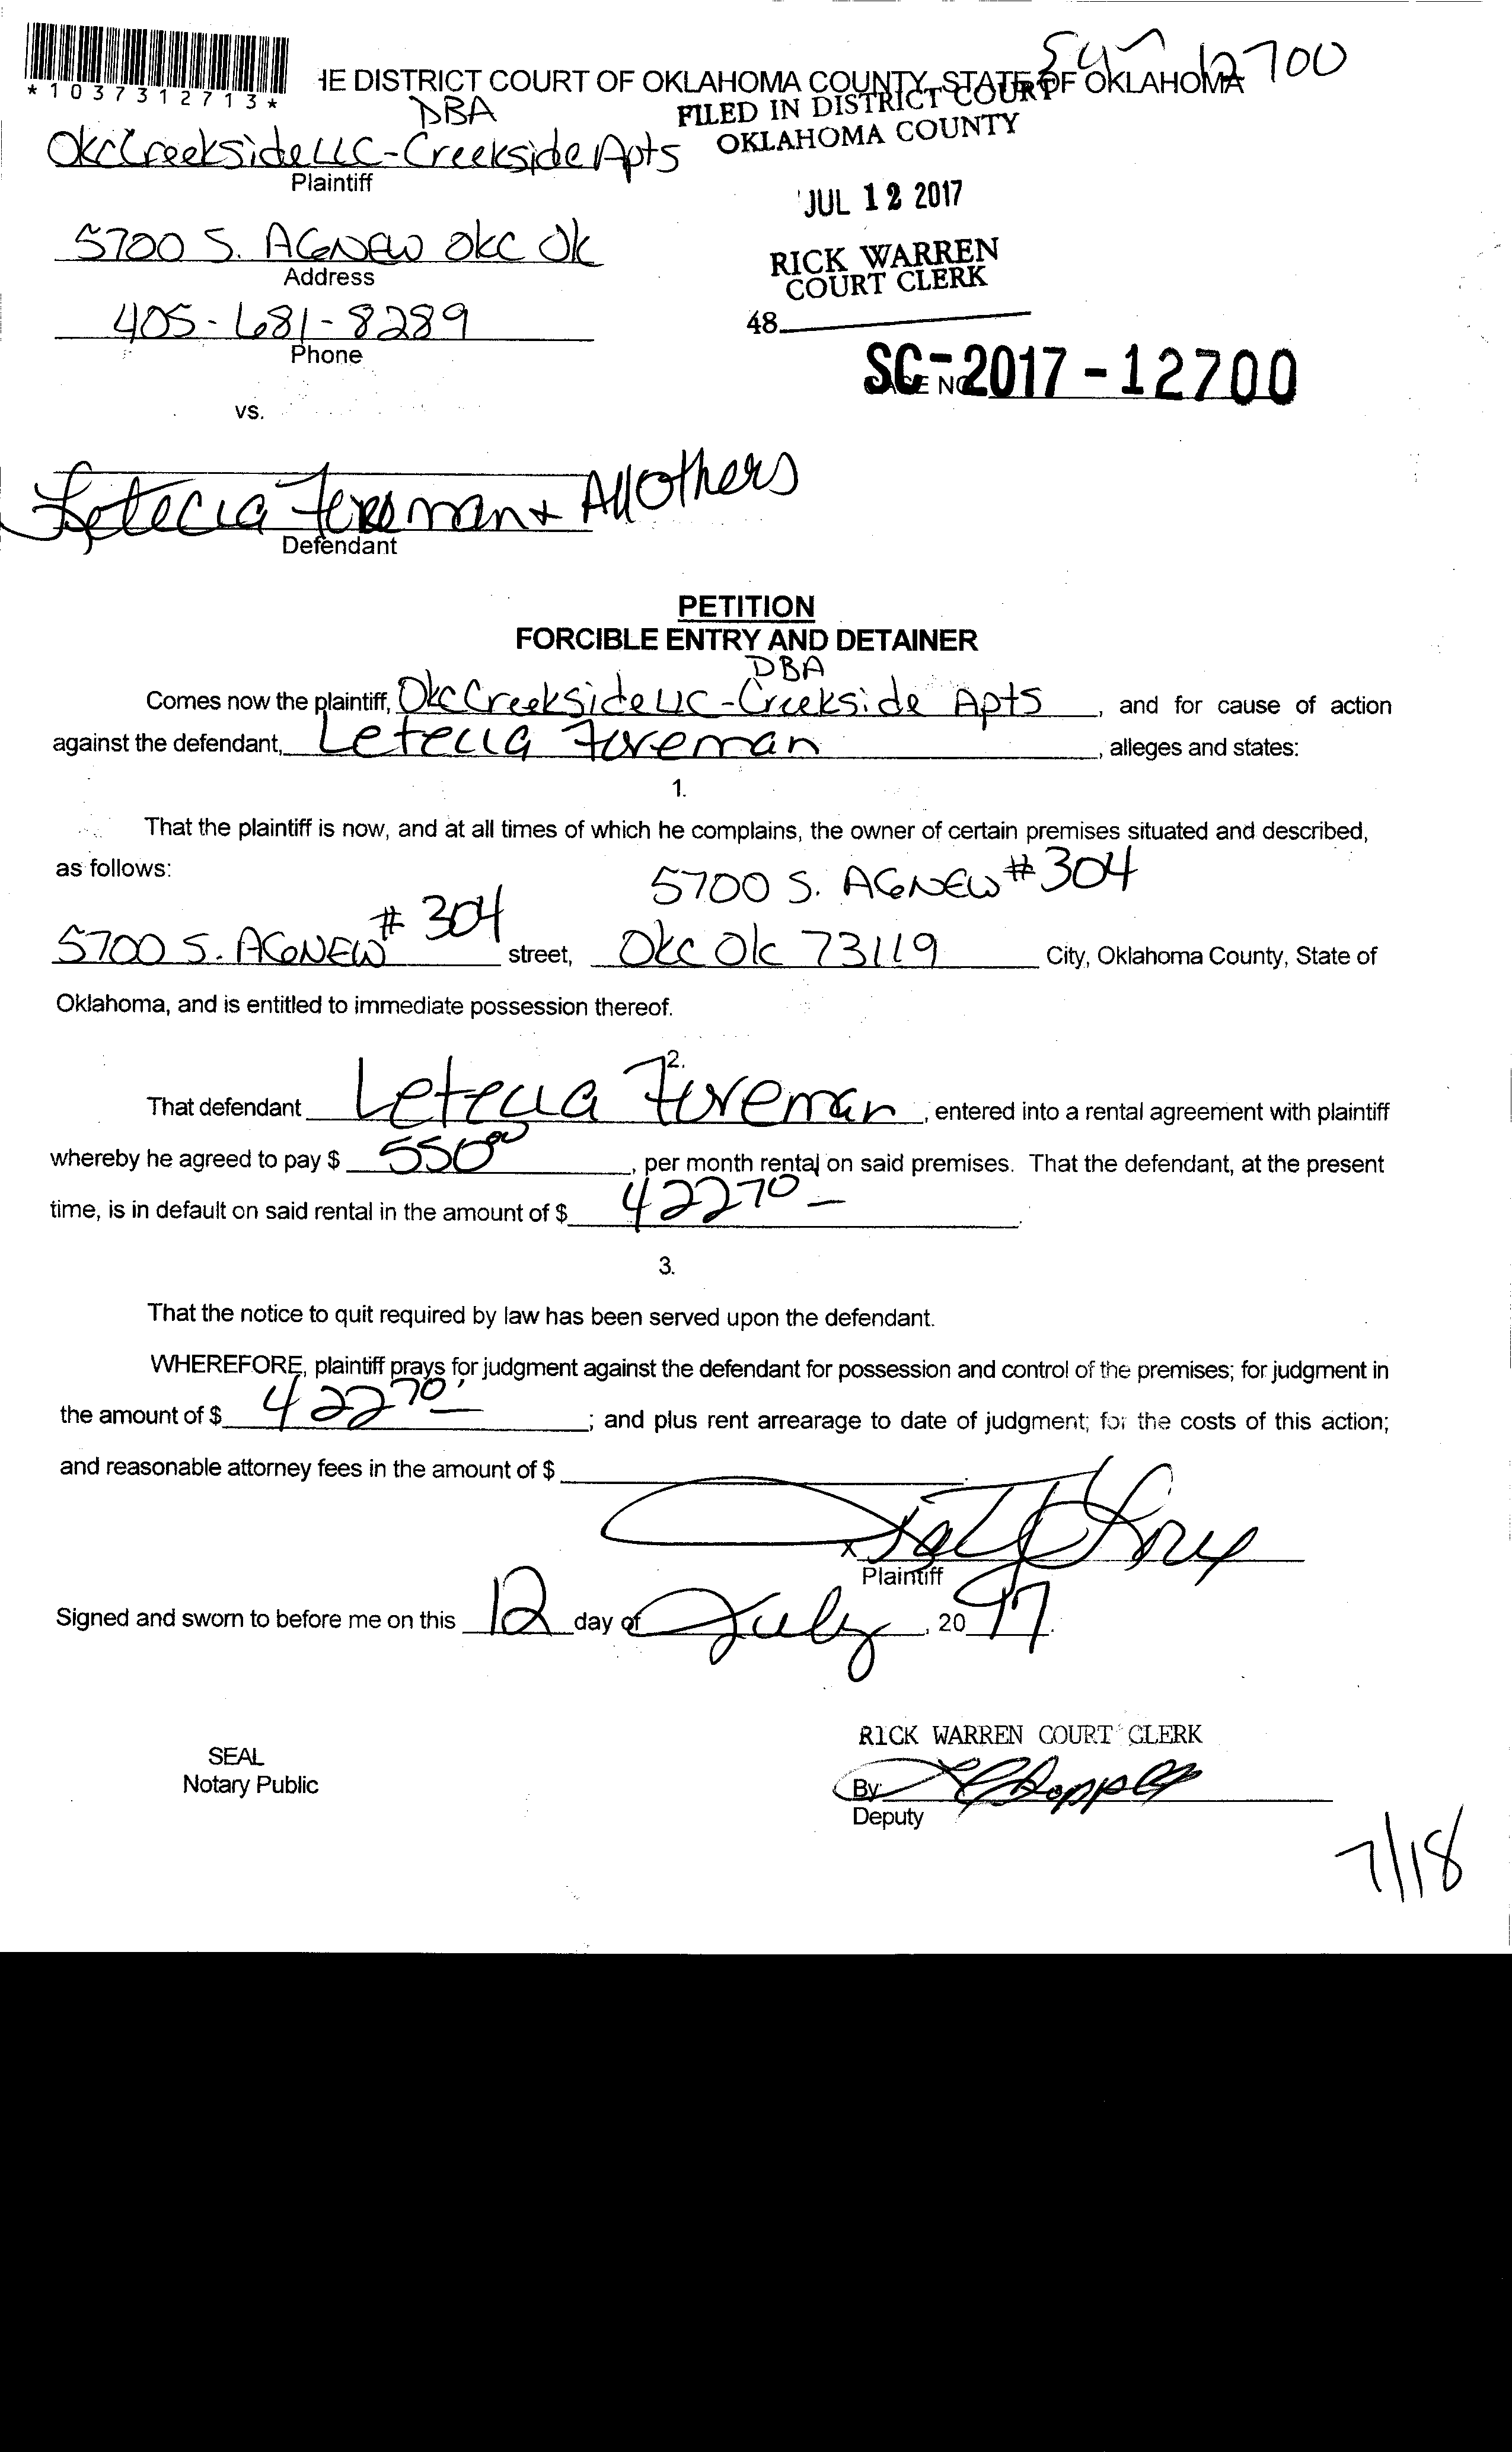 SC- 12700
*1037312713*
HE DISTRICT COURT OF OKLAHOMA COUNTY, STATE OF OKLAHOMA
FILED IN DISTRICT COURT
OKLAHOMA COUNTY
DBA
Okc Creekside LLC - Creekside Apts
Plaintiff
JUL 12 2017
5700 S. AGNEW OKC OK
Address
RICK WARREN
COURT CLERK
405-681-8289
Phone
48
SC-2017-12700
CASE NO.
vs.
Letecia Foreman + All Others
Defendant
PETITION
FORCIBLE ENTRY AND DETAINER
DBA
Comes now the plaintiff, Okc Creekside LLC - Creekside Apts, and for cause of action
against the defendant, Letecia Foreman, alleges and states:
1.
That the plaintiff is now, and at all times of which he complains, the owner of certain premises situated and described,
as follows:
5700 S. AGNEW # 304
5700 S. AGNEW # 304 street, Okc Ok 73119 City, Oklahoma County, State of
Oklahoma, and is entitled to immediate possession thereof.
2.
That defendant Letecia Foreman, entered into a rental agreement with plaintiff
whereby he agreed to pay $ 550 00, per month rental on said premises. That the defendant, at the present
time, is in default on said rental in the amount of $ 422 70.
3.
That the notice to quit required by law has been served upon the defendant.
WHEREFORE, plaintiff prays for judgment against the defendant for possession and control of the premises; for judgment in
the amount of $ 422 70; and plus rent arrearage to date of judgment; for the costs of this action;
and reasonable attorney fees in the amount of $
x
Plaintiff
Signed and sworn to before me on this 12 day of July, 2017.
RICK WARREN COURT CLERK
SEAL
Notary Public
By:
Deputy
7/18